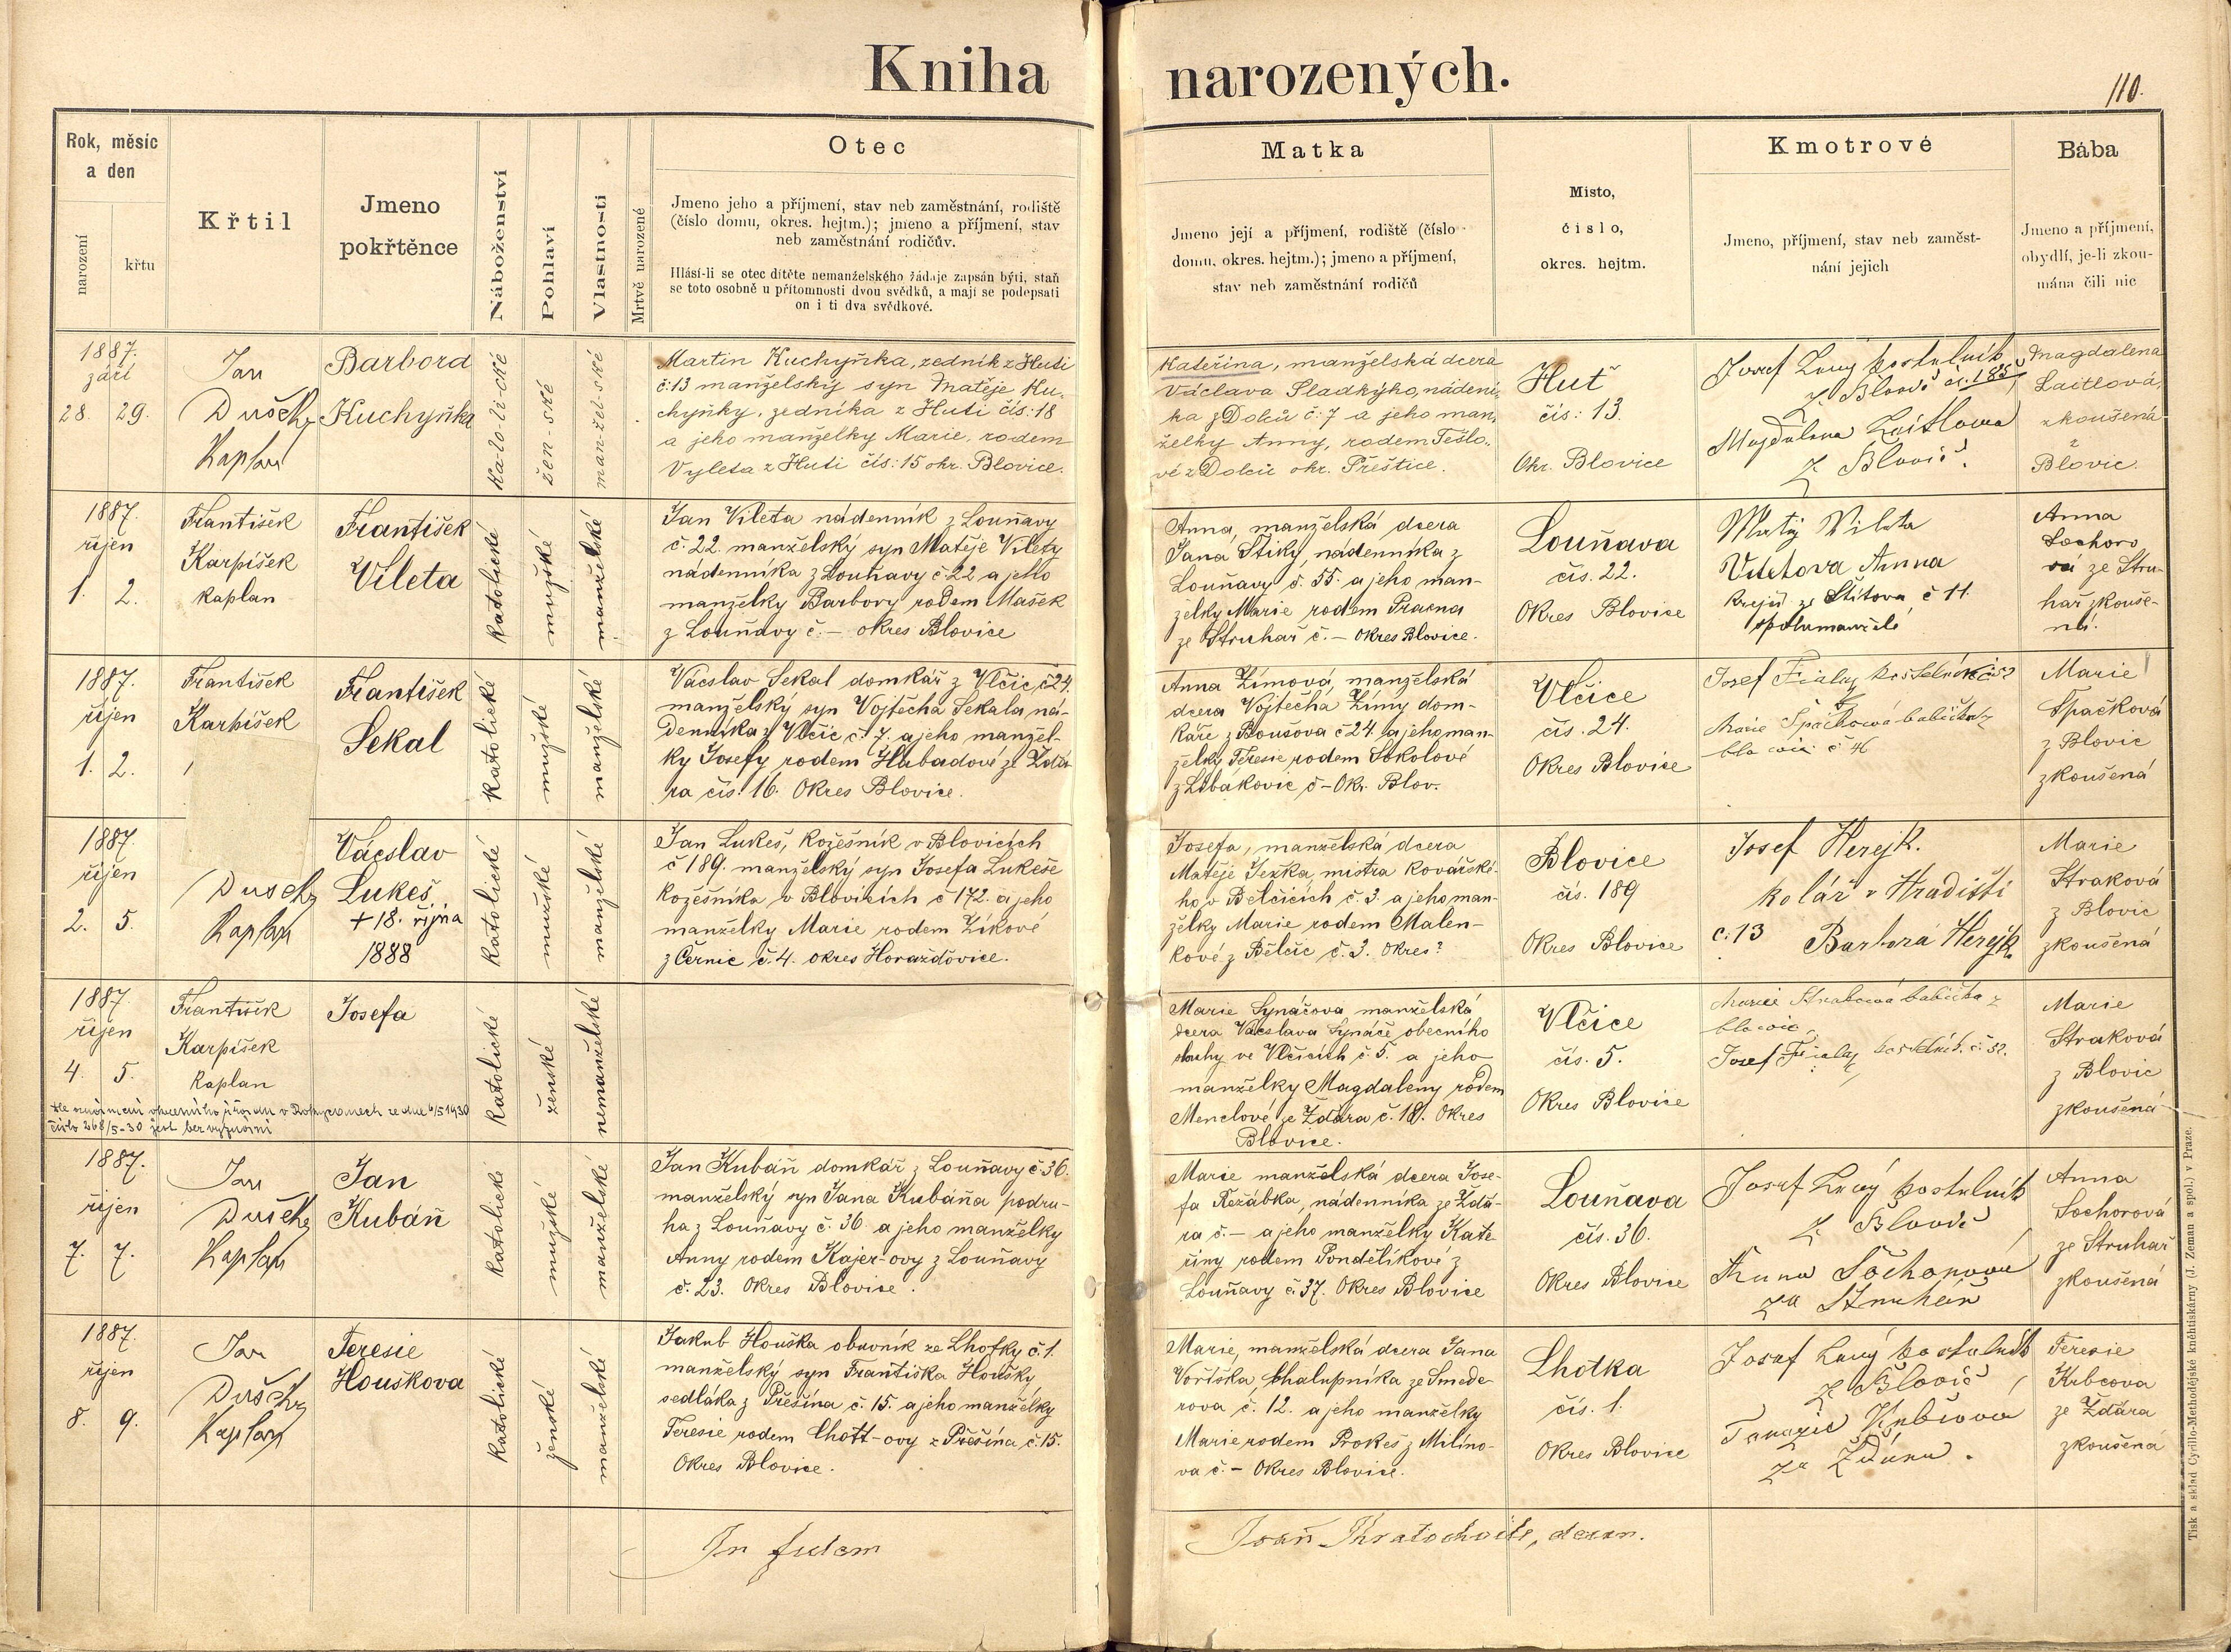 Kniha narozených.
110.
Rok, měsíc
a den
narození
křtu
Křtil
Jmeno
pokřtěnce
Náboženství
Pohlaví
Vlastnosti
Mrtvě narozené
Otec
Jmeno jeho a příjmení, stav neb zaměstnání, rodiště
(číslo domu, okres. hejtm.); jmeno a příjmení, stav
neb zaměstnání rodičův.
Hlásí-li se otec dítěte nemanželského žádaje zapsán býti, staň
se toto osobně u přítomnosti dvou svědků, a mají se podepsati
on i ti dva svědkové.
Matka
Jmeno její a příjmení, rodiště (číslo
domu, okres. hejtm.); jmeno a příjmení,
stav neb zaměstnání rodičů
Místo,
číslo,
okres. hejtm.
Kmotrové
Jmeno, příjmení, stav neb zaměst-
nání jejich
Bába
Jmeno a příjmení,
obydlí, je-li zkou-
mána čili nic
1887.
září
28. 29.
Jan
Kaplan
Barbora
Kuchyňka
ka-to-li-cké
žen-ské
man-žel-ské
Martin Kuchyňka, zedník z Huti
č:13 manželský syn Matěje Ku-
chyňky, zedníka z Huti čís:18
a jeho manželky Marie, rodem
Vyleta z Huti čís:15 okr. Blovice.
Kateřina, manželská dcera
Václava Sladkýho, nádení-
ka z Dolců č:7 a jeho man-
želky Anny, rodem Tešlo-
vé z Dolců okr. Přeštice.
Huť
čís: 13.
Okr. Blovice
Josef kostelník
z Blovic č. 185
Magdalena Laitlova
z Blovic.
Magdalena
Laitlová,
zkoušená
z
Blovic.
1887.
říjen
1. 2.
František
Karpíšek
kaplan
František
Vileta
katolické
mužské
manželské
Jan Vileta nádenník z Louňavy
č. 22. manželský syn Matěje Vilety
nádenníka z Louňavy č 22 a jeho
manželky Barbory rodem Mašek
z Louňavy č. – okres Blovice
Anna, manželská dcera
Jana Štiky, nádenníka z
Louňavy č. 55. a jeho man-
želky Marie rodem
ze Struhař č. – okres Blovice.
Louňava
čís. 22.
Okres Blovice
Matěj Vileta
Viletova Anna
krejčí ze Štítova č 11.
spolumanželé
Anna
Sochoro
vá ze Stru-
hař zkouše-
ná.
1887.
říjen
1. 2.
František
Karpíšek
František
Sekal
katolické
mužské
manželské
Vácslav Sekal domkář z Vlčic, č 24.
manželský syn Vojtěcha Sekala ná-
denníka z Vlčic č. 7. a jeho manžel-
ky Josefy rodem Hubadové ze Ždá-
ra čís. 16. Okres Blovice.
Anna Zímová, manželská
dcera Vojtěcha Zímy dom-
káře z Boušova č 24. a jeho man-
želky Teresie, rodem Sokolové
z Libákovic č – Okr. Blov.
Vlčice
čís. 24.
Okres Blovice
Josef Fialay kostelník č 52
Marie Špačková babička z
č 46
Marie
Špačková
z Blovic
zkoušená
1887.
říjen
2. 5.
Kaplan
Vácslav
Lukeš
+ 18. října
1888
katolické
mužské
manželské
Jan Lukeš, kožešník v Blovicích
č 189. manželský syn Josefa Lukeše
kožešníka v Blovicích č 172. a jeho
manželky Marie rodem Zíkové
z Černic č. 4. okres Horažďovice.
Josefa, manželská dcera
Matěje Ježka, mistra kovářské-
ho v Bělčicích č. 3. a jeho man-
želky Marie, rodem Malen-
kové z Bělčic č. 3. okres?
Blovice
čís. 189
Okres Blovice
Josef Herejk.
kolář v Hradišti
č. 13 Barbora Herejk.
Marie
Straková
z Blovic
zkoušená
1887.
říjen
4. 5.
František
Karpíšek
kaplan
Josefa
katolické
ženské
nemanželské
dle oznámení okresního úřadu v Rokycanech ze dne 6/5 1930
číslo 268/5-30 jest bez vyznání
Marie Synáčova manželská
dcera Vácslava Synáče, obecního
sluhy ve Vlčicích č 5. a jeho
manželky Magdaleny rodem
Menclové ze Ždára č. 18. Okres
Blovice.
Vlčice
čís. 5.
Okres Blovice
Marie Straková babička z
Josef Fialay kostelník. č. 52.
Marie
Straková
z Blovic
zkoušená
1887.
říjen
7. 7.
Jan
Kaplan
Jan
Kubáň
katolické
mužské
manželské
Jan Kubáň domkář z Louňavy č. 36.
manželský syn Jana Kubáňa podru-
ha z Louňavy č. 36. a jeho manželky
Anny rodem Kajer-ovy z Louňavy
č. 23. Okres Blovice.
Marie manželská dcera Jose-
fa Řežábka, nádenníka ze Ždá-
ra č. – a jeho manželky Kate-
řiny rodem Pondělíkové z
Louňavy č. 37. Okres Blovice
Louňava
čís. 36.
Okres Blovice
Josef kostelník
z Blovic
Anna Sochorová
ze Struhař
Anna
Sochorová
ze Struhař
zkoušená
1887.
říjen
8. 9.
Jan
Kaplan
Teresie
Houskova
katolické
ženské
manželské
Jakub Houška obuvník ze Lhotky č. 1.
manželský syn Františka Houšky
sedláka z Přešína č. 15. a jeho manželky
Teresie rodem Chott-ovy z Přešína, č. 15.
Okres Blovice.
Marie, manželská dcera Jana
Voříška, chalupníka ze Smede-
rova č. 12. a jeho manželky
Marie rodem Prokeš z Milíno-
va č. – Okres Blovice.
Lhotka
čís. 1.
Okres Blovice
Josef kostelník
z Blovic
Terezie Krbcova
ze Ždára.
Teresie
Krbcova
ze Ždára
zkoušená
In fidem
děkan.
Tisk a sklad Cyrillo-Methodějské knihtiskárny (J. Zeman a spol.) v Praze.